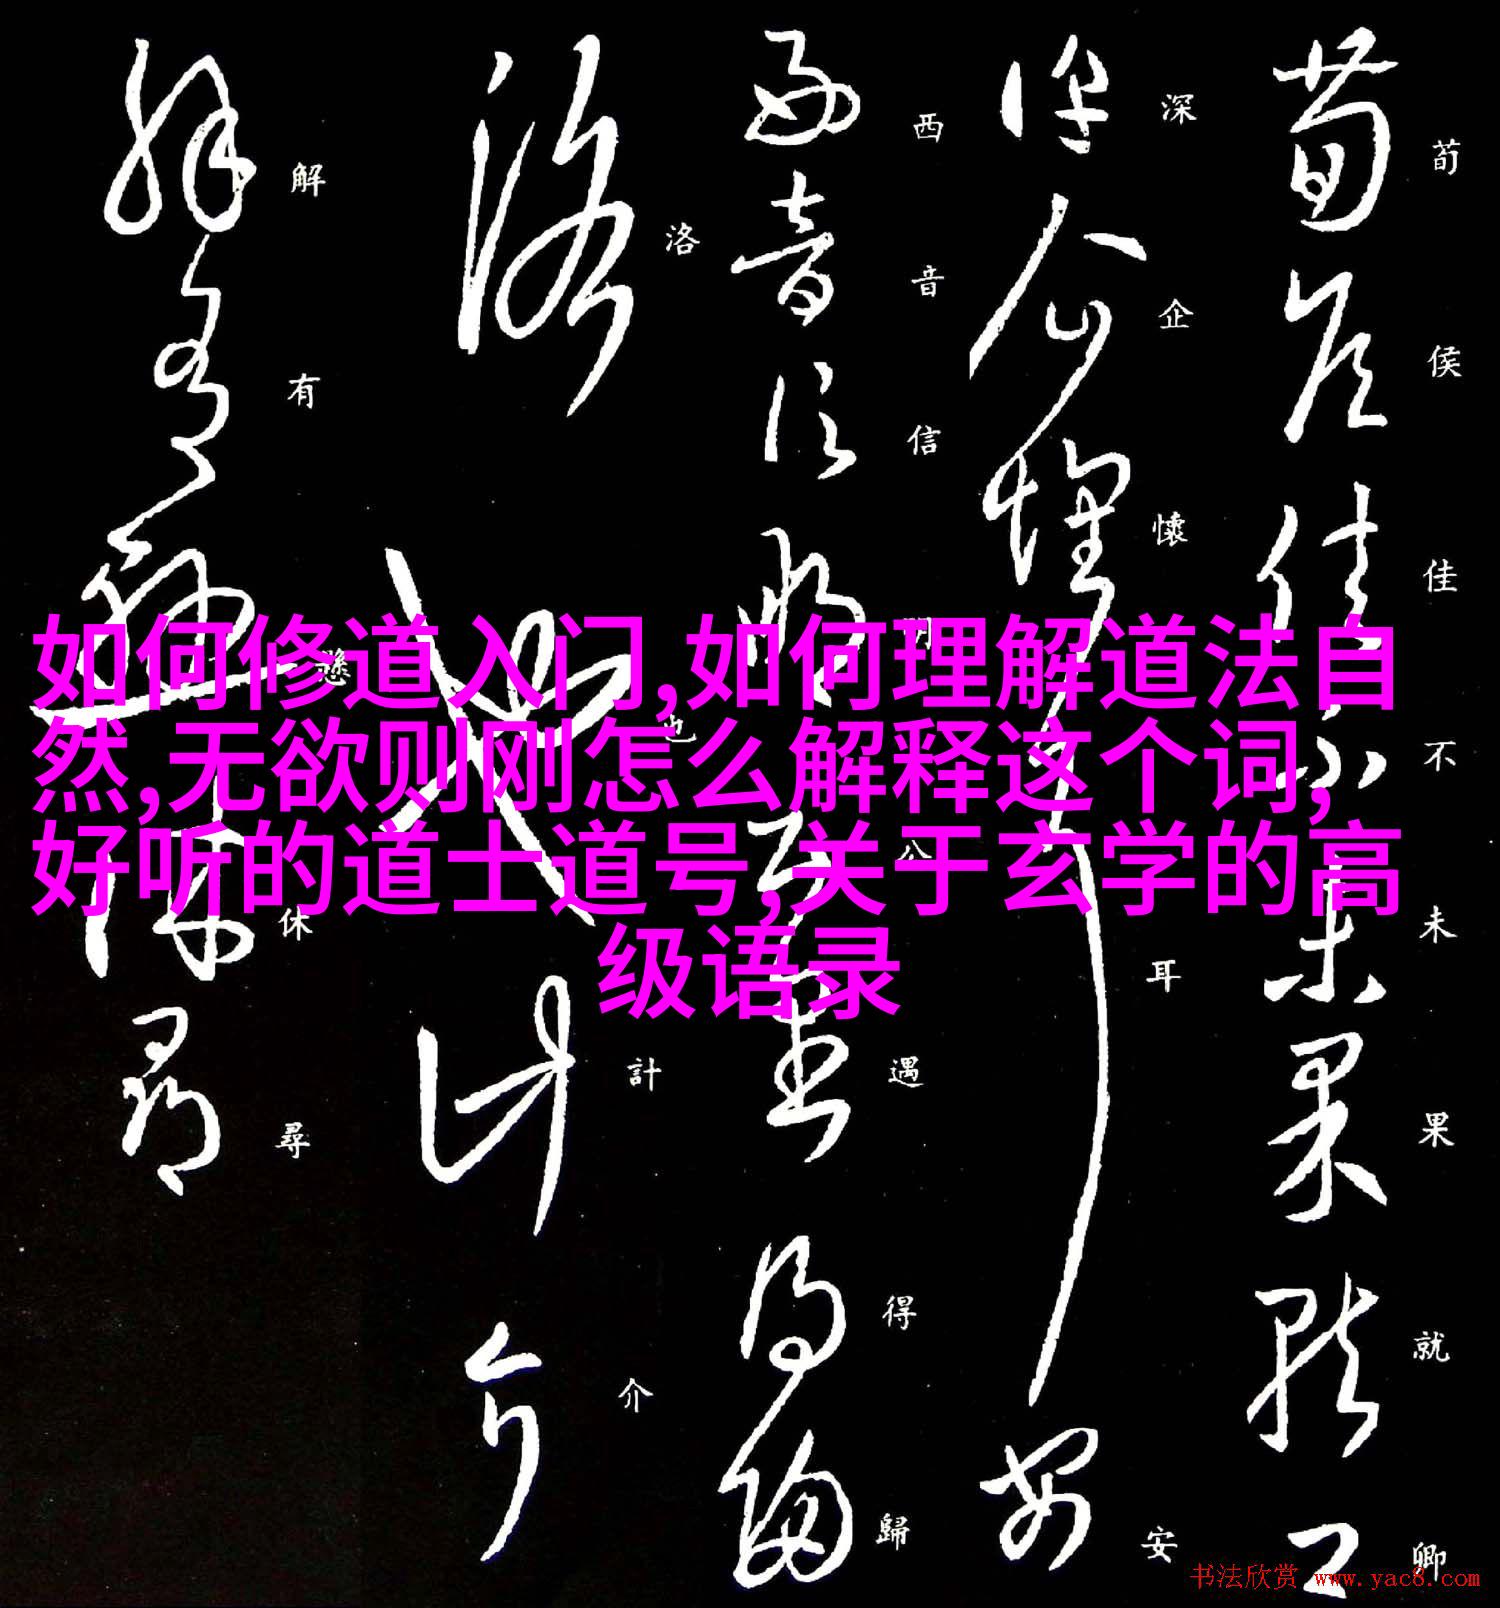 荀侯佳不未果就卿
深企懷耳安
西音信明公遇得歸
洛也計介
解有懸休尋
如何修道入门,如何理解道法自
然,无欲则刚怎么解释这个词,
好听的道士道号,关于玄学的高
级语录
书法欣赏 www.yac8.com